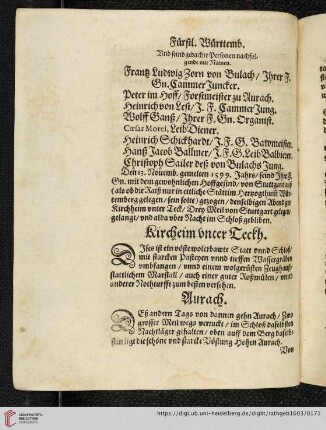 Fürstl. Württemb.
Vnd seind gedachte Personen nachfol-
gende mit Namen.
Frantz Ludwig Zorn von Bulach/ Ihrer F.
Gn. Cammer Juncker.
Peter im Hoff/ Forstmeister zu Aurach.
Heinrich von Lest/ J. F. Cammer Jung.
Wolff Ganß/ Ihrer F. Gn. Organist.
Cæsar Morel, Leib Diener.
Heinrich Schickhardt/ J. F. G. Bawmeister.
Hanß Jacob Ballmer/ J. F. G. Leib Balbierer.
Christoph Sailer deß von Bulachs Jung.
Den 13. Nouemb. gemelten 1599. Jahrs/ seind Ihre F.
Gn. mit dem gewohnlichen Hoffgesind/ von Stuttgart auß
(als ob die Raiß nur in etliche Stätt im Hertzogthumb Wür-
temberg gelegen/ sein solte) gezogen/ denselbigen Abend gen
Kirchheim vnter Teck/ Drey Meil von Stuttgart gelegen/
gelangt/ vnd alda vber Nacht im Schloß gebliben.
Kircheim vnter Teckh.
DIses ist ein vöste wolerbawte Statt vnnd Schloß/
mit starcken Pasteyen vnnd tieffen Wassergräben
vmbfangen/ vnnd einem wolgerüsten Zeughauß/
stattlichem Marstall/ auch einer guter Roßmülen/ vnnd
anderer Notturfft zum besten versehen.
Aurach.
DEß andern Tags von dannen gehn Aurach/ Zwo
grosser Meil wegs verruckt/ im Schloß daselbsten
Nachtläger gehalten/ oben auff dem Berg daselb-
sten ligt die schöne vnd starcke Vöstung Hohen Aurach.
Von
https://digi.ub.uni-heidelberg.de/diglit/rathgeb1603/0171